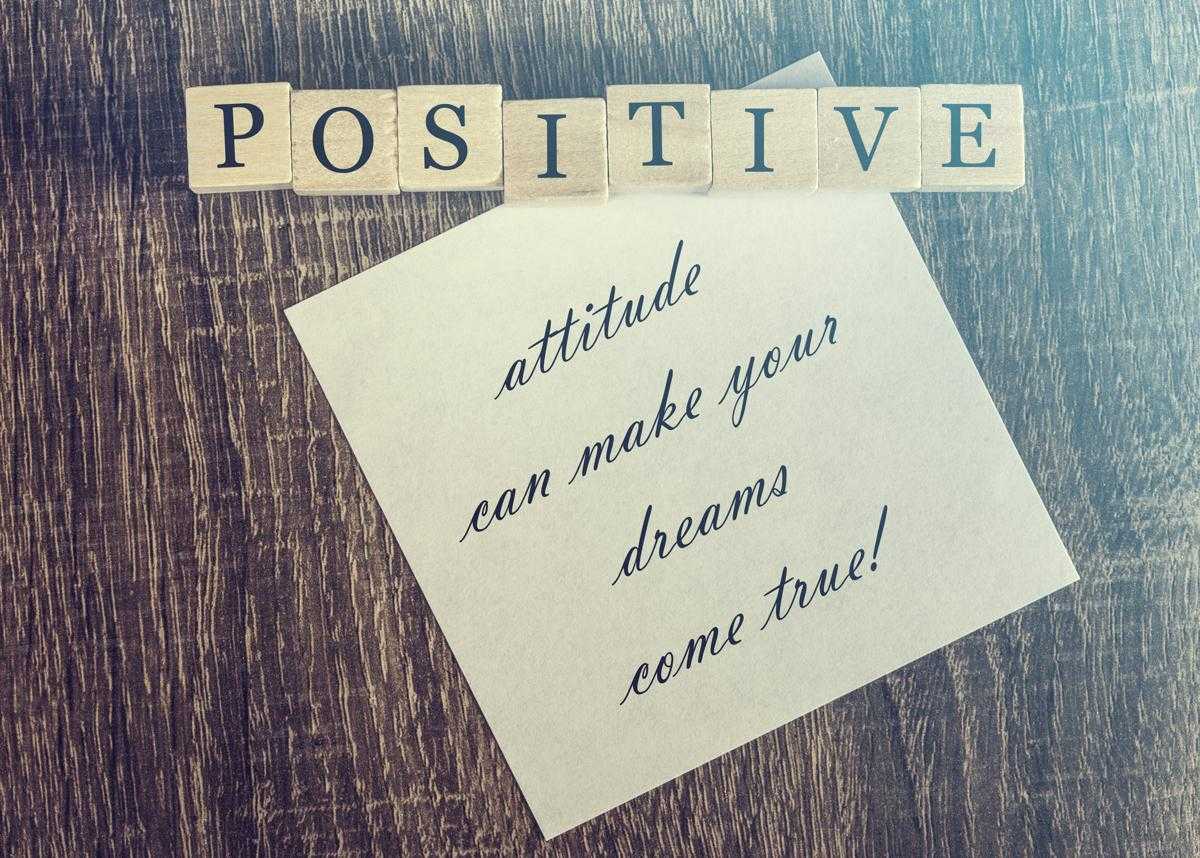 POSITIVE
attitude
can make your
dreams
come true!